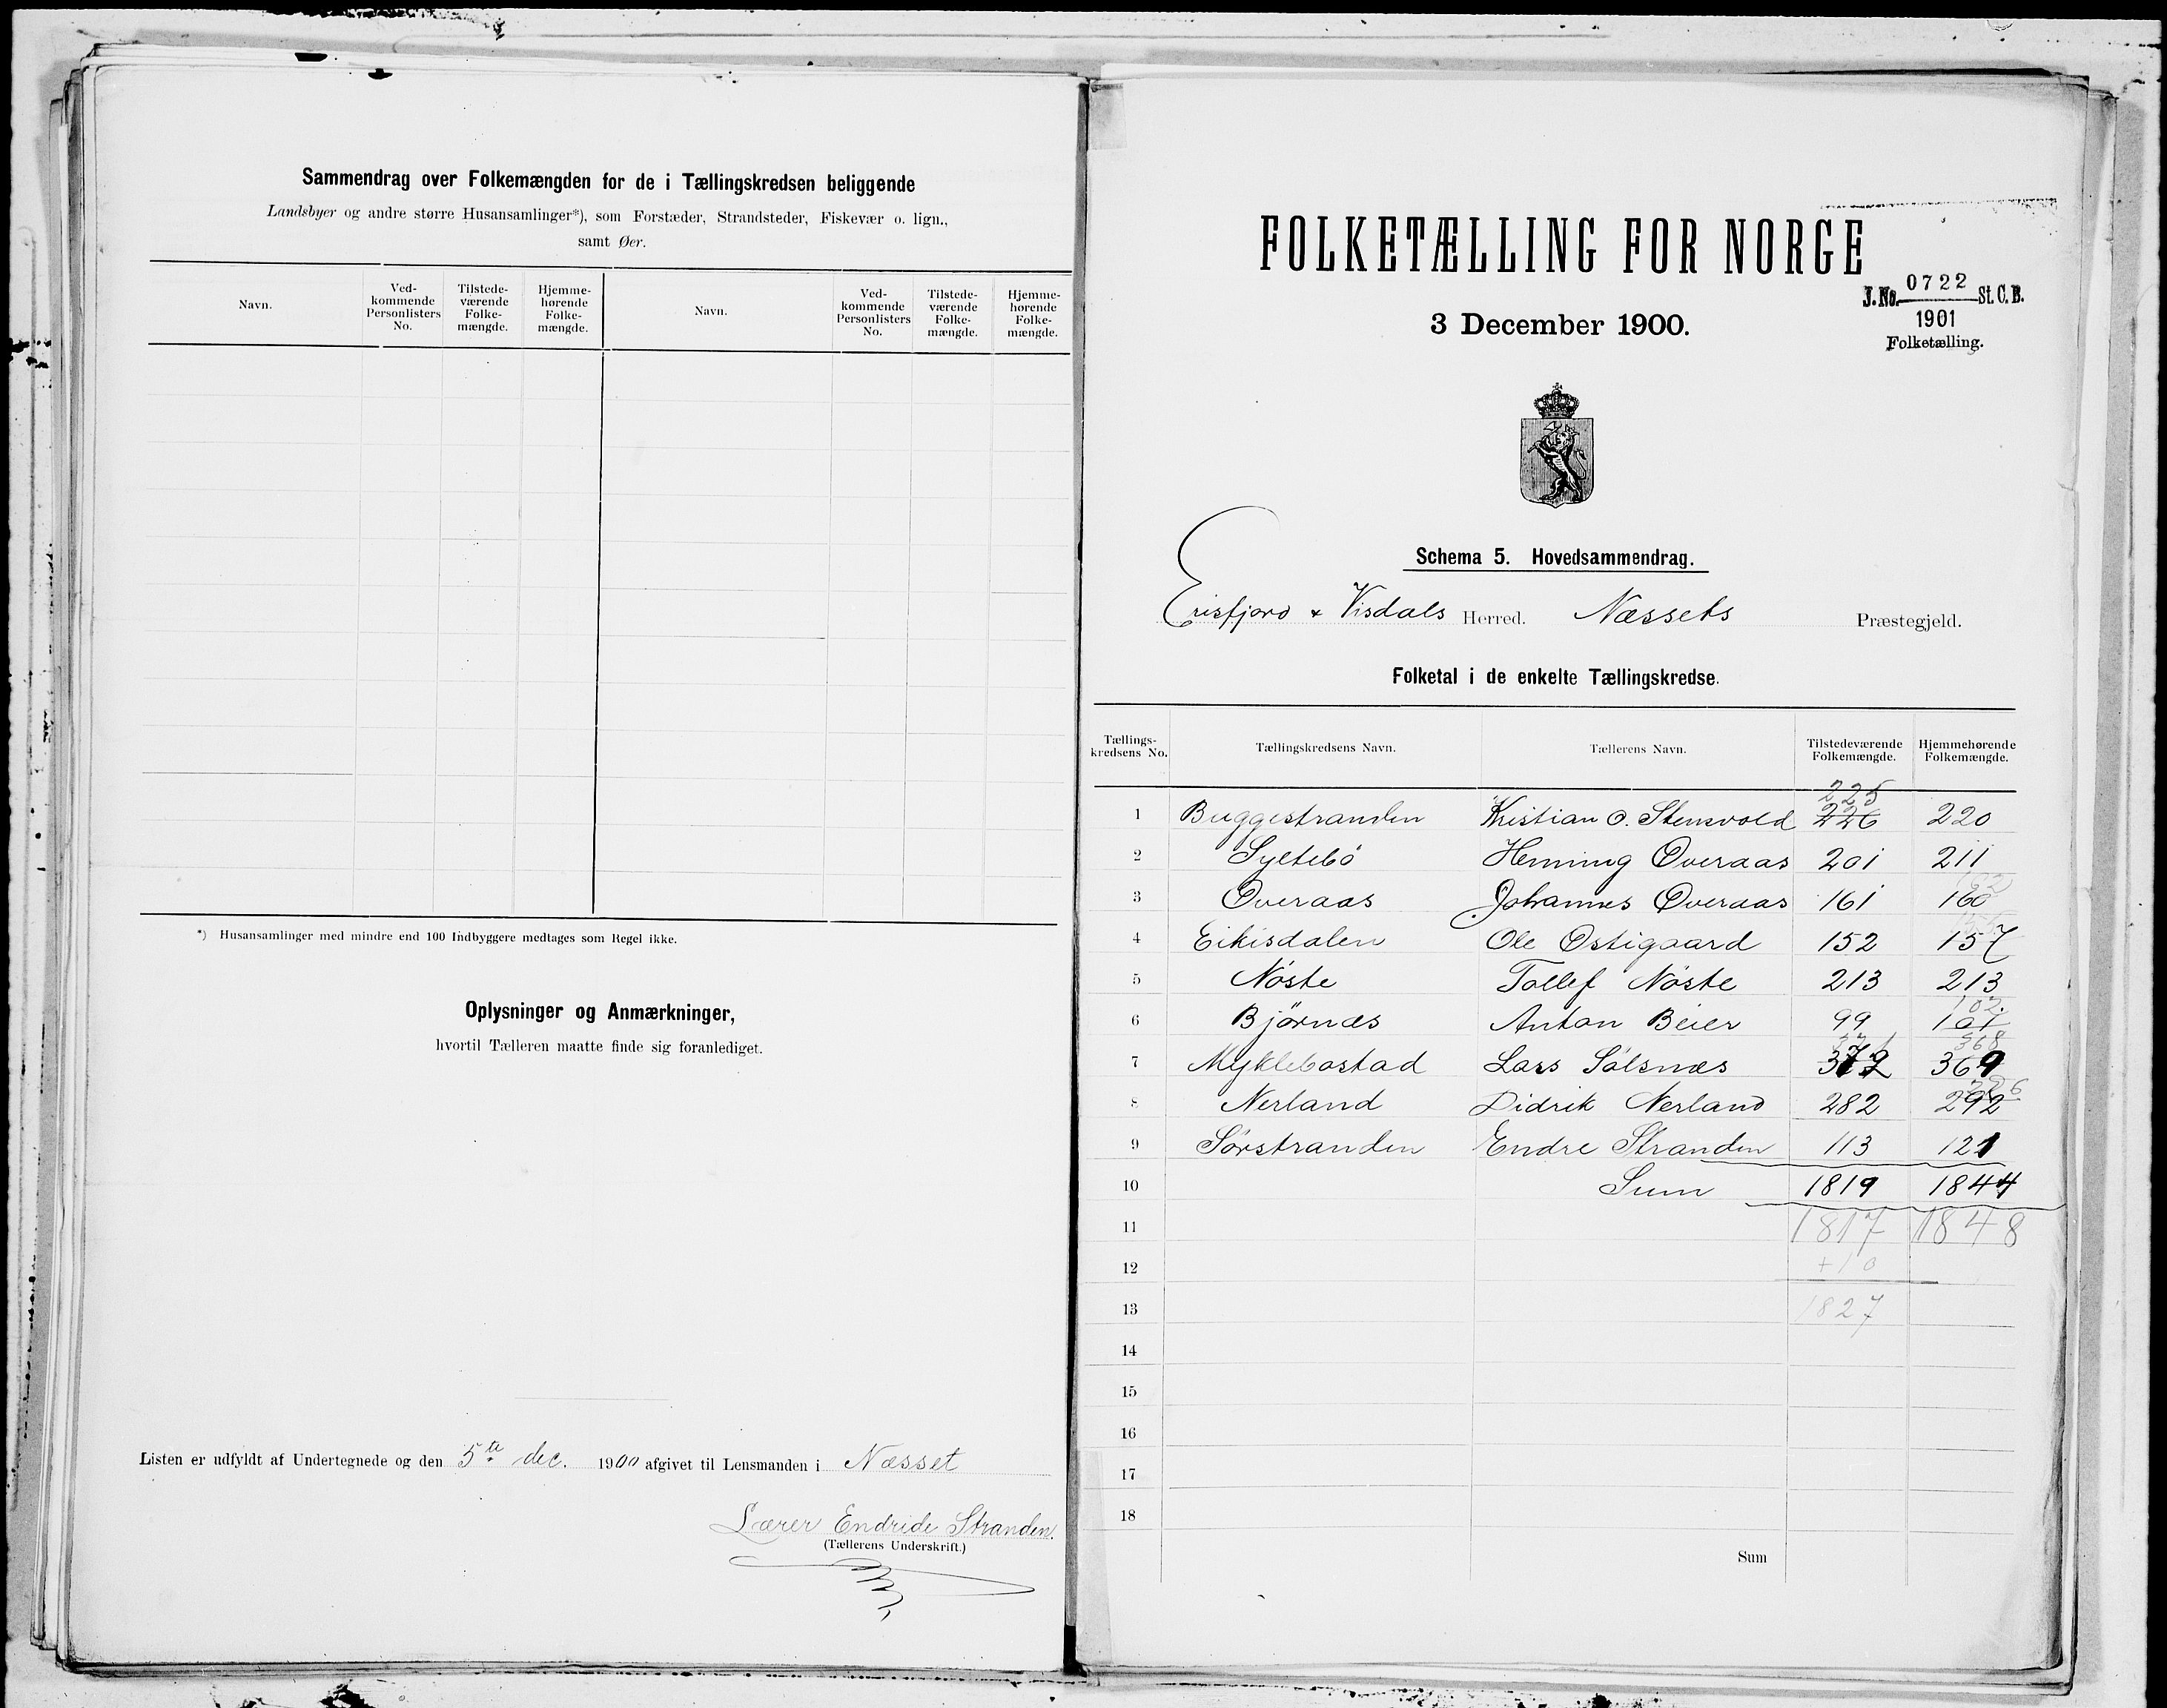 Sammendrag over Folkemængden for de i Tællingskredsen beliggende
Landsbyer og andre større Husansamlinger*), som Forstæder, Strandsteder, Fiskevær o. lign.,
samt Øer.
Navn. Ved-kommende Personlisters No. Tilstede-værende Folke-mængde. Hjemme-hørende Folke-mængde. Navn. Ved-kommende Personlisters No. Tilstede-værende Folke-mængde. Hjemme-hørende Folke-mængde.
*) Husansamlinger med mindre end 100 Indbyggere medtages som Regel ikke.
Oplysninger og Anmærkninger,
hvortil Tælleren maatte finde sig foranlediget.
Listen er udfyldt af Undertegnede og den 5te dec. 1900 afgivet til Lensmanden i Næsset
Lærer Endride Stranden.
(Tællerens Underskrift.)
FOLKETÆLLING FOR NORGE
3 December 1900.
J. No. 0722 St. C. B.
1901
Folketælling.
Schema 5. Hovedsammendrag.
Erisfjord & Visdals Herred. Næssets Præstegjeld.
Folketal i de enkelte Tællingskredse.
Tællings-kredsens No. Tællingskredsens Navn. Tællerens Navn. Tilstedeværende Folkemængde. Hjemmehørende Folkemængde.
225
1 Buggestranden Kristian O. Stensvold 226 220
2 Syltebö Henning Øveraas 201 211
162
3 Øveraas Johannes Øveraas 161 160
4 Eikisdalen Ole Østigaard 152 157
5 Nöste Tollef Nöste 213 213
102.
6 Björnæs Anton Beier 99 101
371 368
7 Myklebostad Lars Sölsnæs 372 369
8 Nerland Didrik Nerland 282 292
9 Sörstranden Endre Stranden 113 121
10 Sum 1819 1844
11 1817 1848
12 +10
13 1827
14
15
16
17
18
Sum